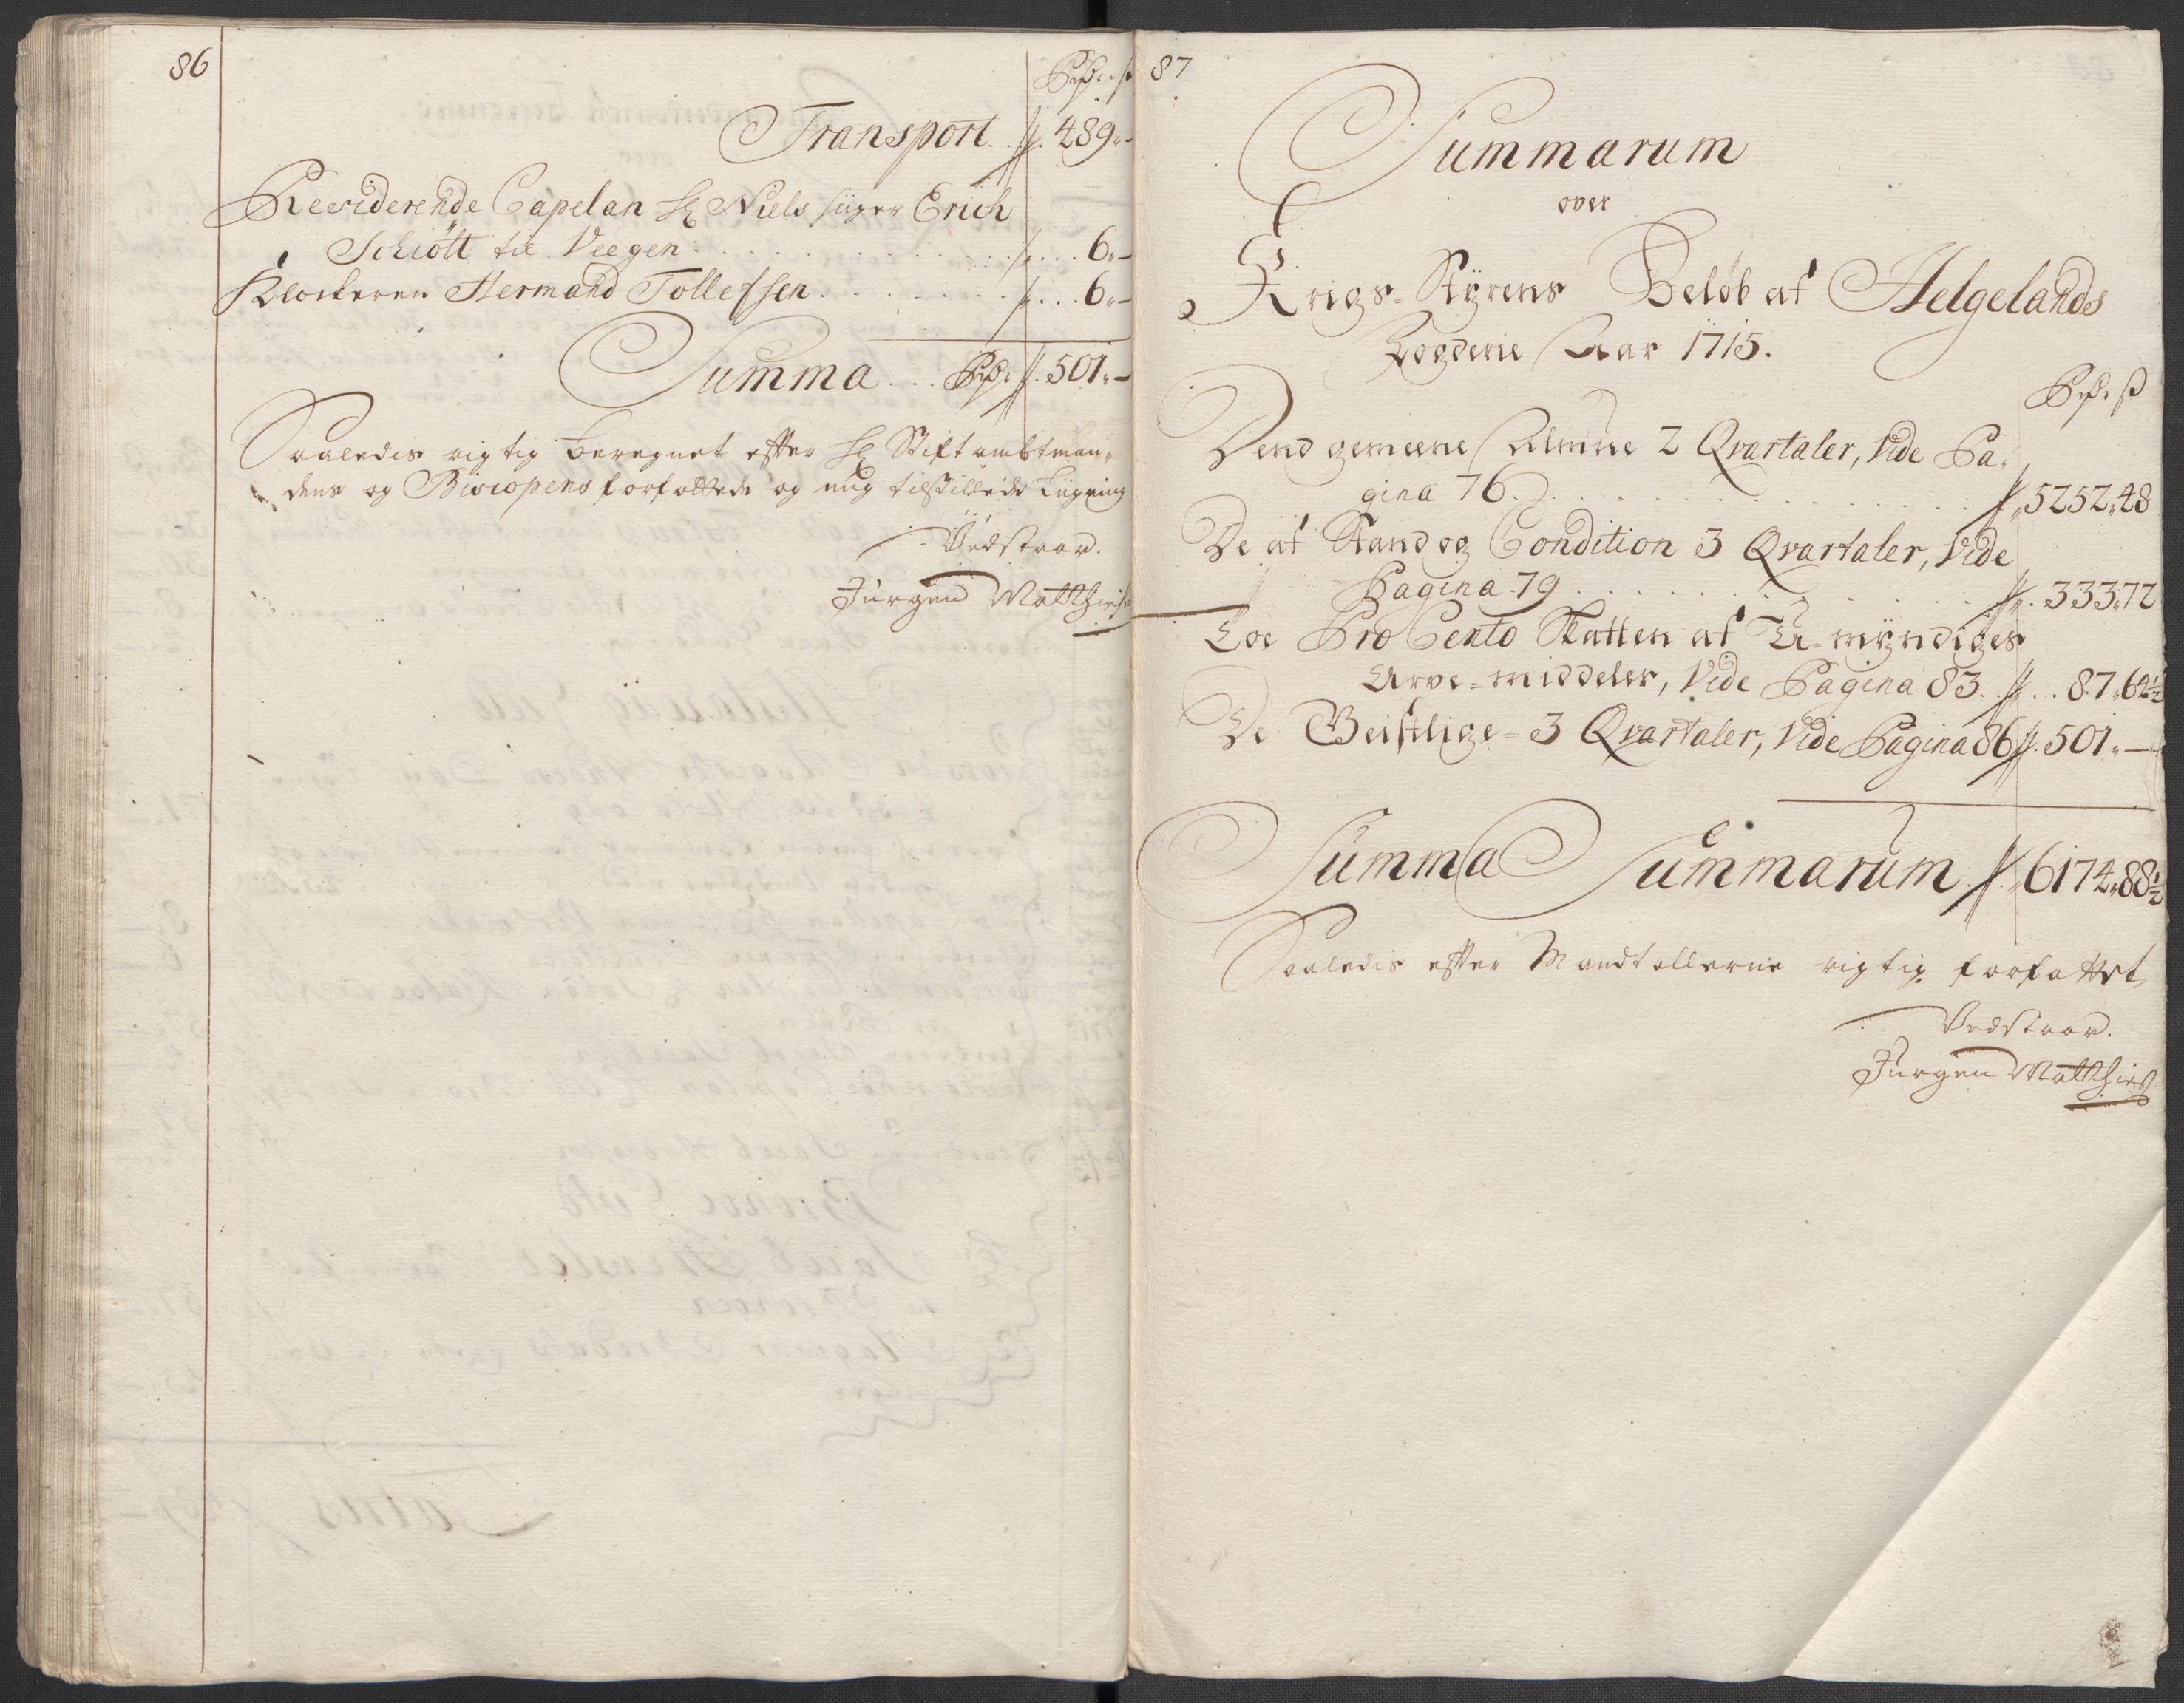 86
Rdr. ß
Transport .. 489 „ -
Residerende Capelan Hr Niels Erich
Schiött til Veegen . . . . 6 „ -
Klockeren Hermand Tollefsen . . . . 6 „ -
Summa .. Rdr. 501 „ -
Saaledis rigtig beregnet efter Hr Stiftambtman„
dens og Biscopens forfattede og mig tilstillede Ligning
Vedstaar.
Jürgen Matthies
87
Summarum
over
Krigs-Styrens Beløb af Helgelands
Fogderie Aar 1715.
Rdr. ß
Dend gemeene Almue 2 Qvartaler, Vide Pa-
gina 76. . . . 5252 „ 48
De af Stand og Condition 3 Qvartaler, Vide
Pagina 79 . . . . 333 „ 72
Pro Cento Skatten af U-myndiges
Arve-middeler, Vide Pagina 83. . . 87 „ 64½
De Geistlige - 3 Qvartaler, Vide Pagina 86 . 501 „ —
Summa Summarum . 6174 „ 88½
Saaledis efter Mandtallerne rigtig forfattet,
Vedstaar.
Jürgen Matthies